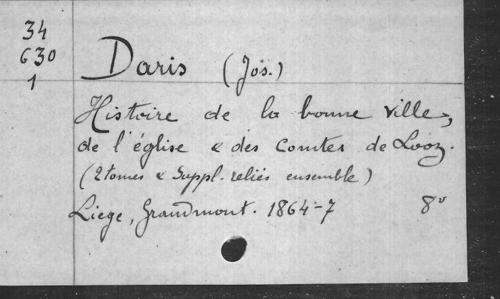 34
630
1
Daris (Jos.)
Histoire de la bonne ville,
de l'église & des Comtes de Looz.
(2 tomes & Suppl. reliés ensemble)
Liege, Grandmont. 1864-7 8°